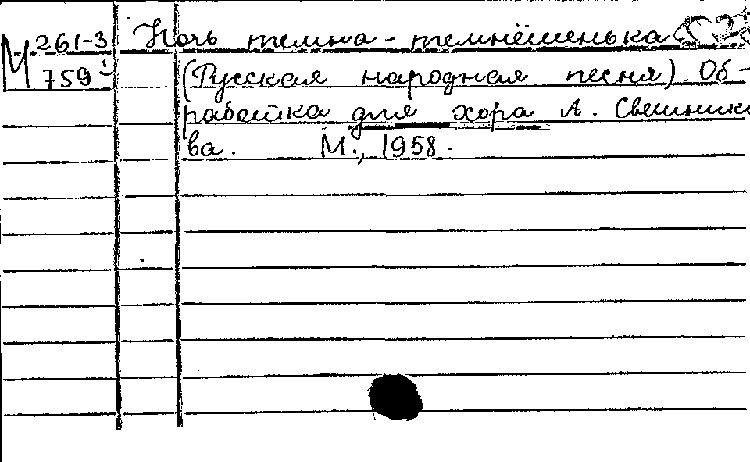 М 261-3 Ночь темна-темнёшенька
759 (Русская народная песня) Об-
работка для хора А. Свешнико
ва. М., 1958.